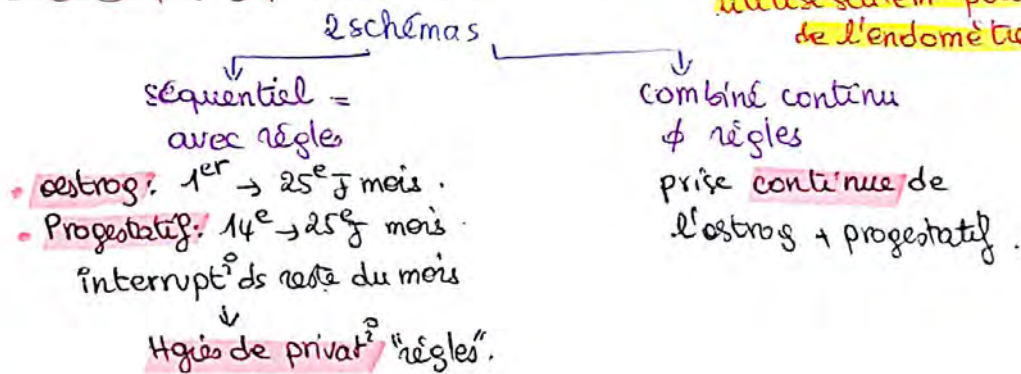 de l'endomètre
2 schémas
séquentiel =
avec règles
• oestrog: 1er → 25e J mois.
• Progestatif: 14e → 25e J mois.
interrupt° ds reste du mois
↓
Hgies de privat° "règles".
combiné continu
∅ règles
prise continue de
l'œstrog + progestatif.